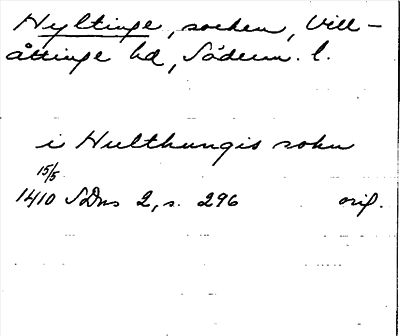 Hyltinge, socken, Vill-
åttinge hd, Söderm. l.
i Hulthungis sokn
15/5
1410 SDns 2, s. 296 orig.